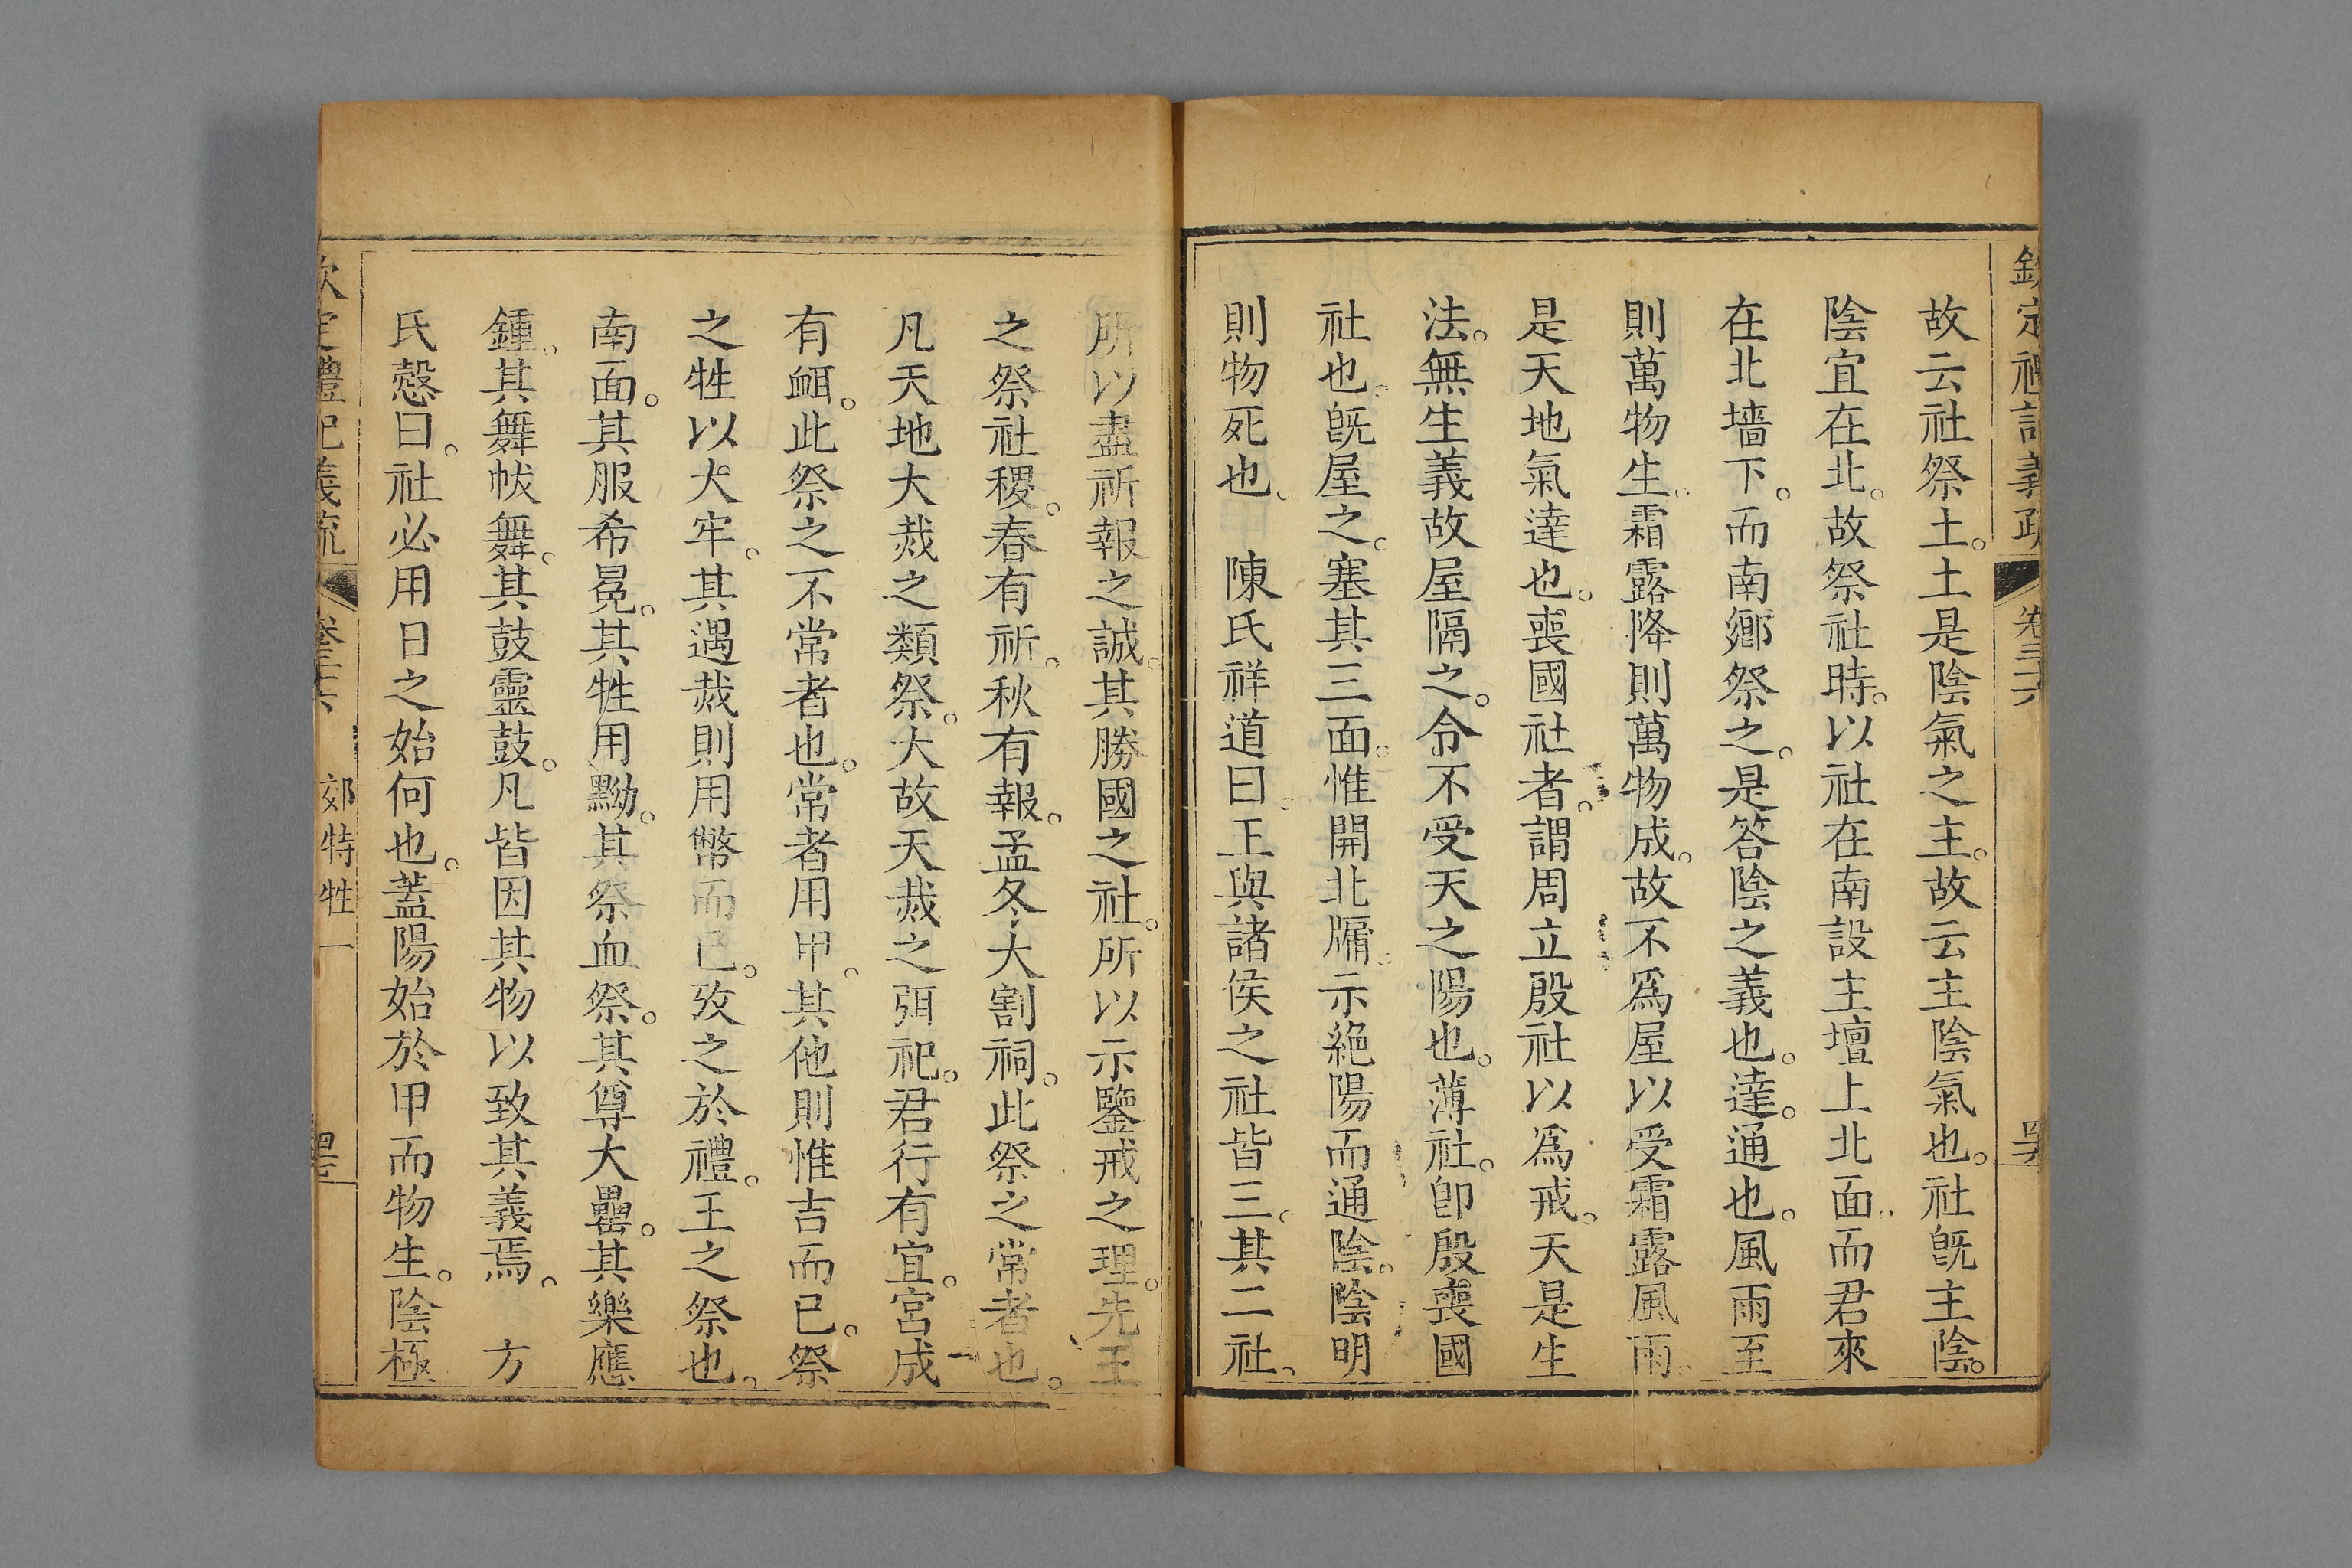 欽定禮記義疏 卷三十六
故云社祭土。土是陰氣之主。故云主陰氣也。社旣主陰。
陰宜在北。故祭社時。以社在南設主壇上北面。而君來
在北墻下。而南鄉祭之。是答陰之義也。達。通也。風雨至
則萬物生。霜露降則萬物成。故不爲屋以受霜露風雨。
是天地氣達也。喪國社者。謂周立殷社以爲戒。天是生
法。無生義故屋隔之。令不受天之陽也。薄社。卽殷喪國
社也。旣屋之。塞其三面。惟開北牖。示絶陽而通陰。陰明
則物死也。 陳氏祥道曰。王與諸侯之社皆三。其二社。
所以盡祈報之誠。其勝國之社。所以示鑒戒之理。先王
之祭社稷。春有祈。秋有報。孟冬大割祠。此祭之常者也。
凡天地大烖之類祭。大故天烖之弭祀。君行有宜。宮成
有衈。此祭之不常者也。常者用甲。其他則惟吉而已。祭
之牲以犬牢。其遇烖則用幣而已。攷之於禮。王之祭也。
南面。其服希冕。其牲用黝。其祭血祭。其尊大罍。其樂應
鍾。其舞帗舞。其鼓靈鼓。凡皆因其物以致其義焉。 方
氏慤曰。社必用日之始何也。蓋陽始於甲而物生。陰極
欽定禮記義疏 卷三十六 郊特牲一